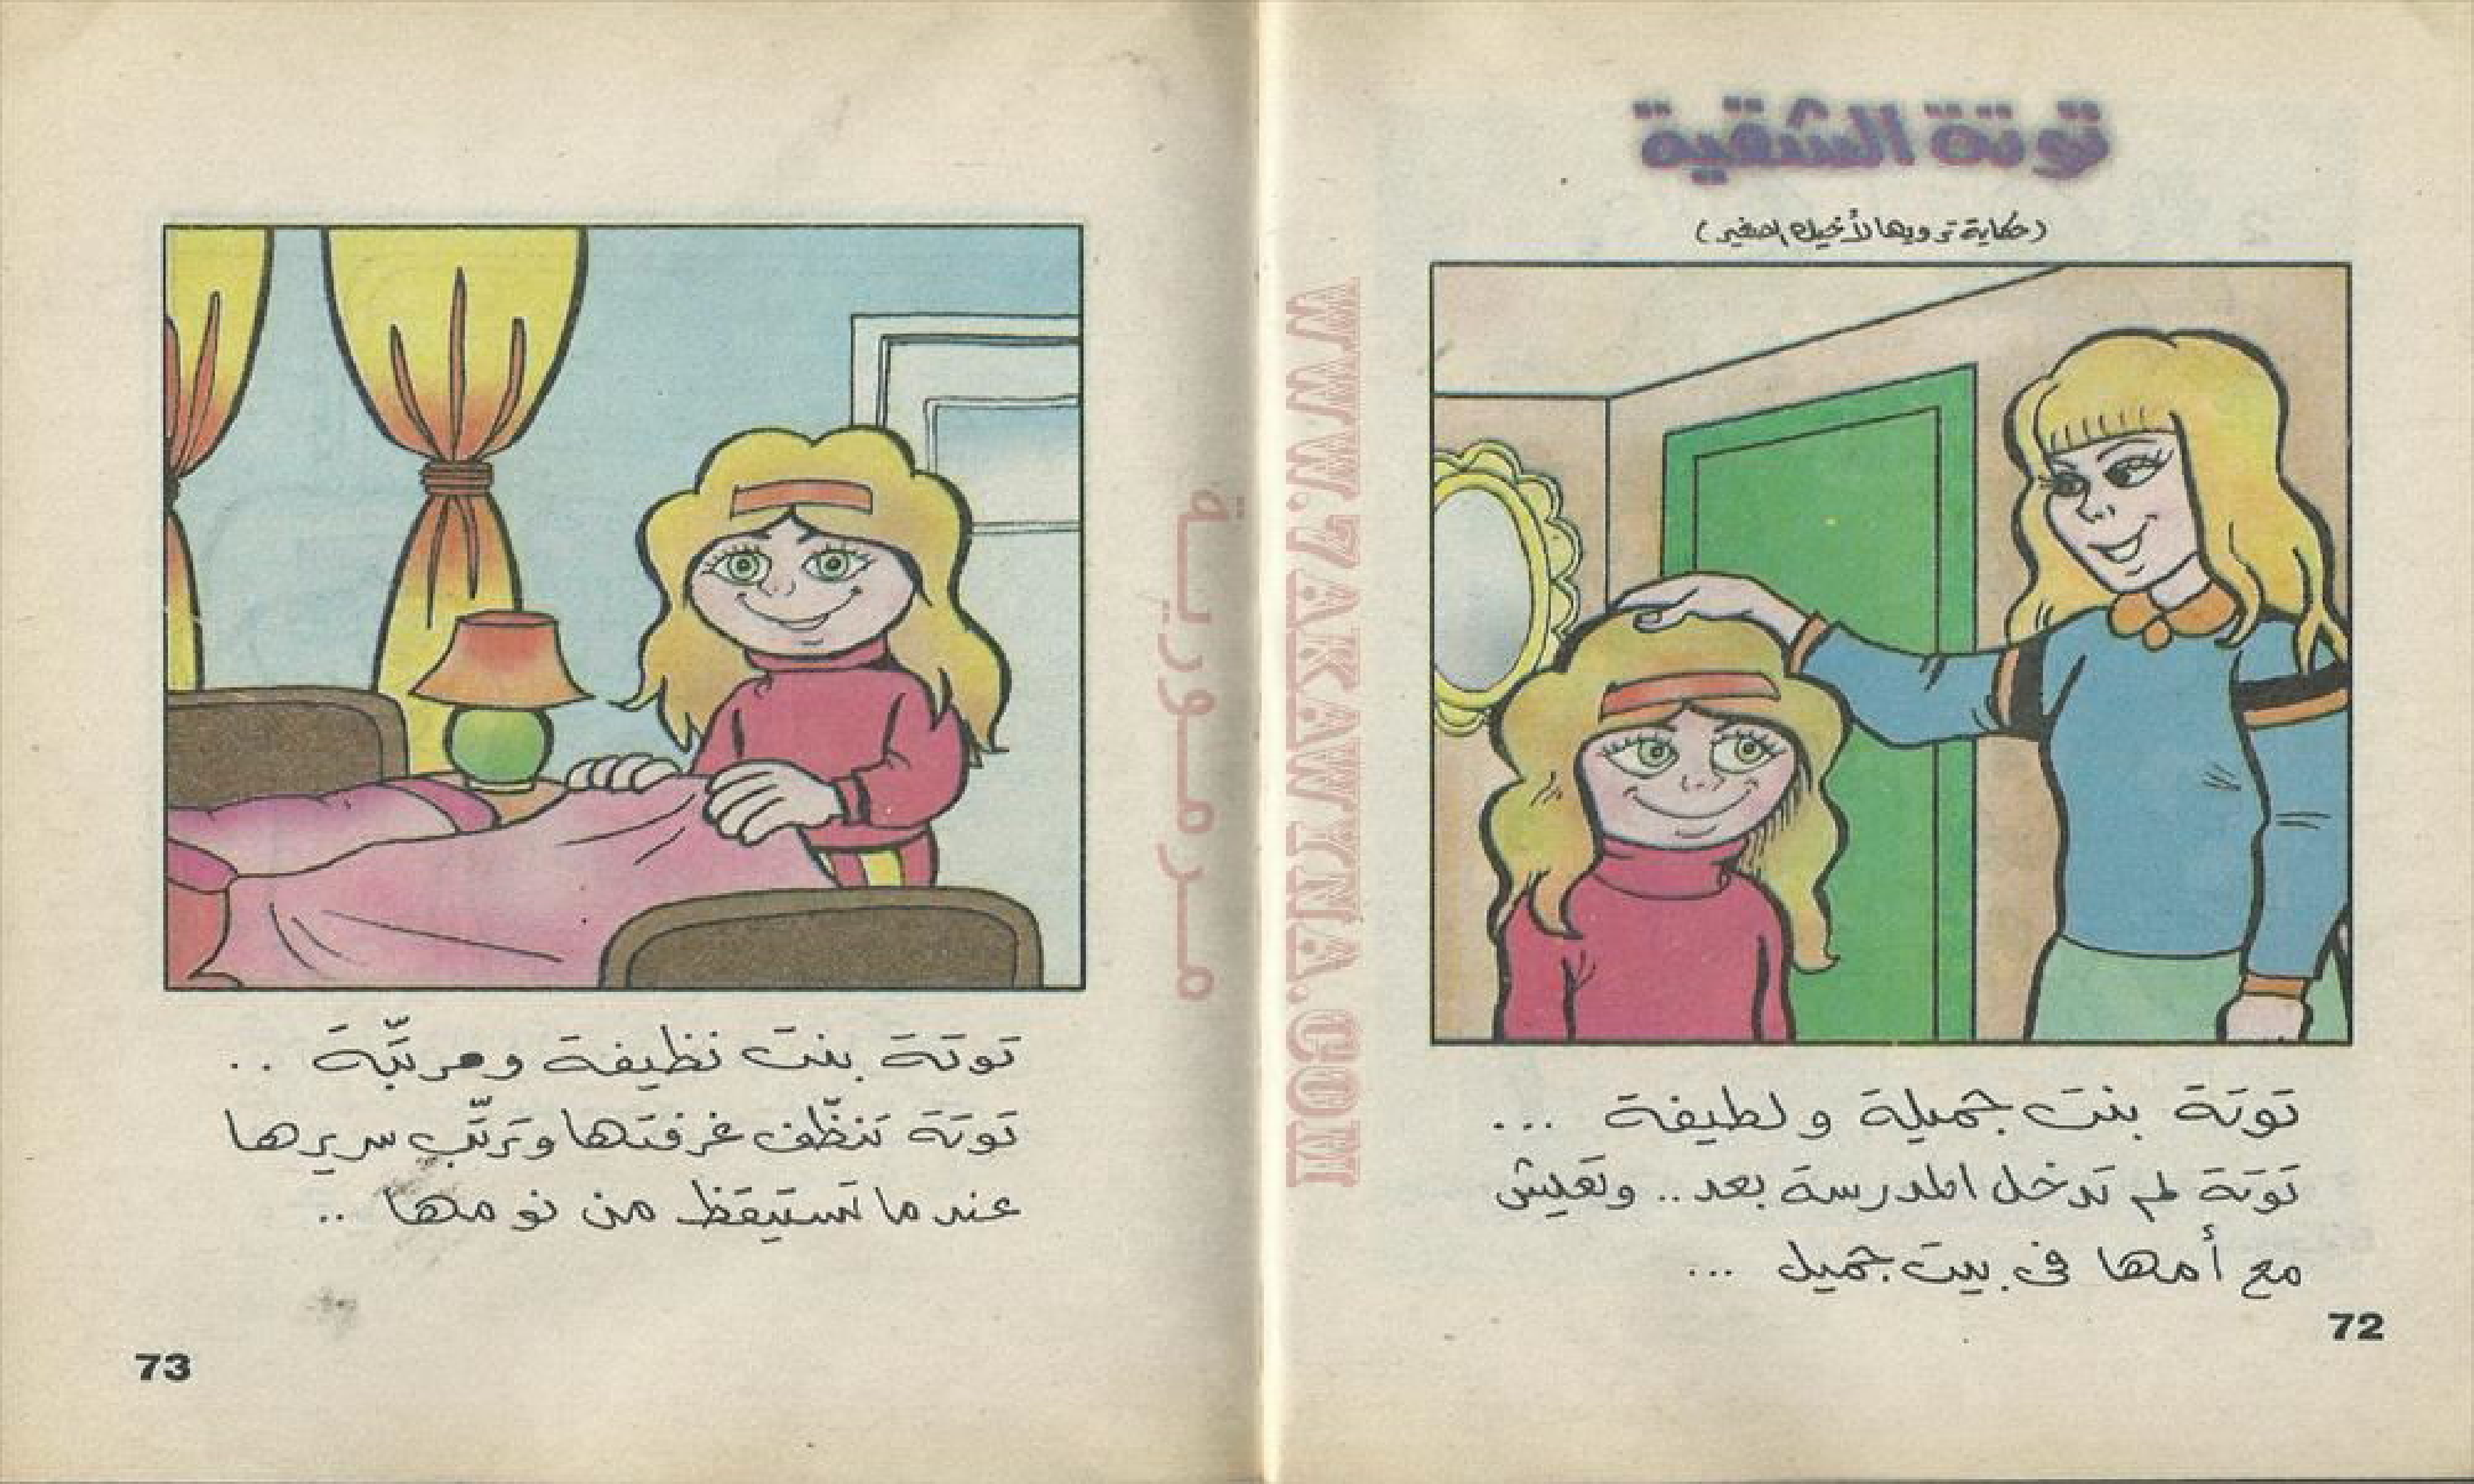 توتة الشقية
(حكاية ترويها لأخيك الصغير)
توتة بنت جميلة ولطيفة ...
توتة لم تدخل المدرسة بعد .. وتعيش
مع أمها فى بيت جميل ...
72
WWW.7AKAWINA.COM
مرمورية
توتة بنت نظيفة ومرتّبة ..
توتة تنظّف غرفتها وترتّب سريرها
عندما تستيقظ من نومها ..
73